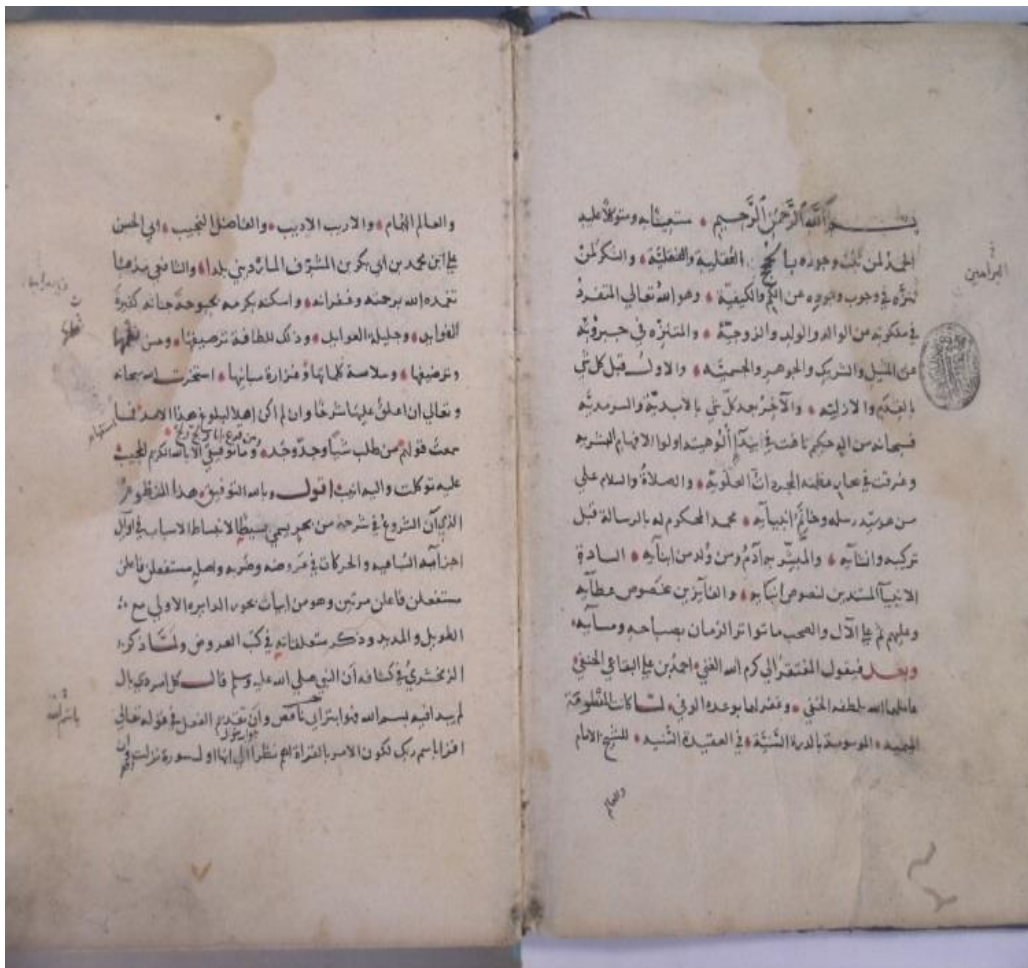 بسم الله الرحمن الرحيم مستعينا به ومتوكلا عليه
الحمد لمن ثبت وجوده بالحجج العقلية والنقلية والشكر لمن
تنزه في وجوب وجوده عن الكم والكيفية وهو الله تعالى المتفرد
في ملكوته عن الوالد والولد والزوجية والمتنزه في جبروته
عن المثيل والشريك والجوهر والجسمية والاول قبل كل شي
بالقدم والازلية والآخر بعد كل شي بالابدية والسرمدية
فسبحانه من اله حكيم تاهت في الوهيته اولوا الافهام البشرية
وغرقت في بحار عظمته المجردات العلوية والصلاة والسلام على
من هو سيد رسله وخاتم انبيايه محمد المحكوم له بالرسالة قبل
تركيبه وانشايه والمبشر به آدم ومن ولد من ابنايه السادة
الانبيا المستدين لنصوص انبايه والفايزين بخصوص عطايه
وعليهم ثم على الآل والصحب ما تواتر الزمان بصباحه ومسايه
وبعد فيقول المفتقر الى كرم الله الغني احمد بن علي البقاعي الحنفي
عاملهما الله بلطفه الخفي وغفر لهما بوعده الوفي لما كانت المنظومة
الموسومة بالدرة السنية في العقيدة السنية للشيخ الامام
والعالم
البراهين
والعالم الهمام والارب الاديب والفاضل النجيب ابي الحسن
علي ابن محمد بن ابي بكر بن المشرف المارديني بلدا والشافعي مذهبا
تغمده الله برحمته وغفرانه واسكنه بكرمه بحبوحة جنانه كثيرة
الفوايد وجليلة العوايد وذلك للطافة ترصيفها وحسن نظمها
وترصيفها وسلاسة كلماتها وغزارة بيانها استخرت الله سبحانه
وتعالى ان اعلق عليها شرحا وان لم اكن اهلا لبلوغ هذا الامد فقد
سمعت قولهم من طلب شيا وجد وجد وما توفيقي الا بالله الكريم المجيب
عليه توكلت واليه انيب اقول وبالله التوفيق هذا المنظوم
الذي آن الشروع في شرحه من بحر يسمى بسيطا لانبساط الاسباب في اوايل
اجزايه السباعيه والحركات في عروضه وضربه واصله مستفعلن فاعلن
مستفعلن فاعلن مرتين وهو من ابيات بحور الدايرة الاولى مع
الطويل والمديد وذكر متعلقاته في كتب العروض ولما ذكر
الزمخشري في كشافه ان النبي صلى الله عليه وسلم قال كل امر ذي بال
لم يبدا فيه بسم الله فهو ابتر اي ناقص وان تقديم الفعل في قوله تعالى
اقرا باسم ربك لكون الامر بالقراة اهم نظرا الى انها اول سورة نزلت